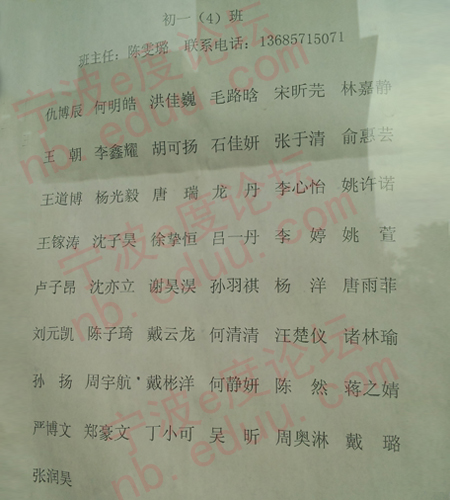 初一（4）班
班主任：陈雯璐 联系电话：13685715071
仇博辰 何明皓 洪佳巍 毛路晗 宋昕芫 林嘉静
王 朝 李鑫耀 胡可扬 石佳妍 张于清 俞惠芸
王道博 杨光毅 唐 瑞 龙 丹 李心怡 姚许诺
王镓涛 沈子昊 徐挚恒 吕一丹 李 婷 姚 萱
卢子昂 沈亦立 谢吴淏 孙羽祺 杨 洋 唐雨菲
刘元凯 陈子琦 戴云龙 何清清 汪楚仪 诸林瑜
孙 扬 周宇航 戴彬洋 何静妍 陈 然 蒋之婧
严博文 郑豪文 丁小可 吴 昕 周奥淋 戴 璐
张润昊
宁波e度论坛
nb.eduu.com
宁波e度论坛
nb.eduu.com
宁波e度论坛
nb.eduu.com